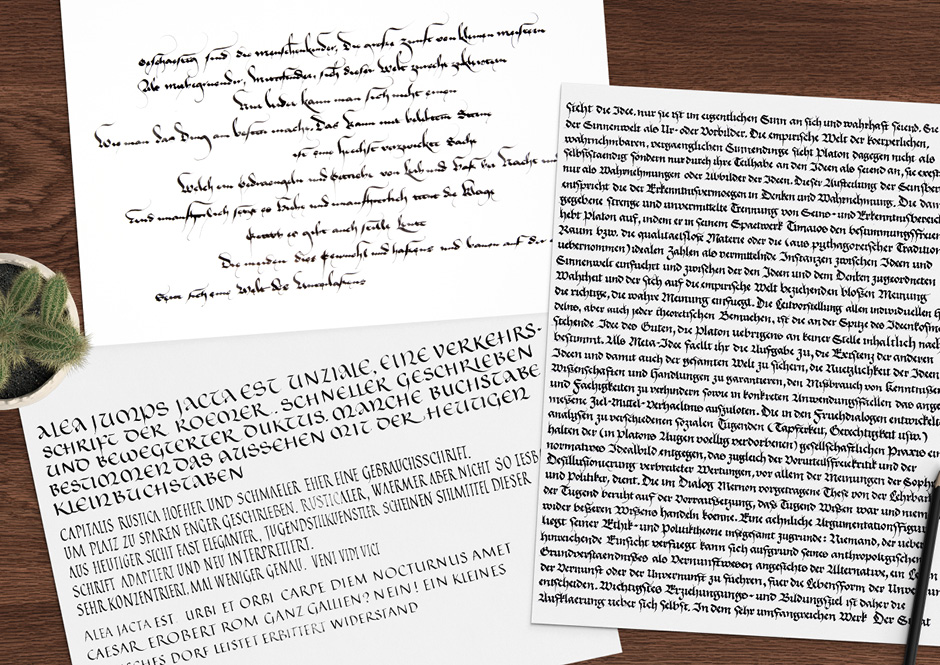 die Menschenkinder, Die große Zunft von kleinen Meistern
dieser Welt zurecht zukleistern
Nur leider kann man sich nicht einen
Wie man das Ding am besten macht. Das kann mit
ist eine hoechst verzwickte Sache
Welch ein und Getriebe von Lieb und Haß bei Nacht und
Und unaufhoerlich und unaufhoerlich die Klage
Gottlob es gibt auch stille Leut
Die meiden dies Gewuehl und hassens und bauen auf der
sich eine Welt des Unterlassens
ALEA JUMPS JACTA EST UNZIALE, EINE VERKEHRS-
SCHRIFT DER ROEMER. SCHNELLER GESCHRIEBEN
UND BEWEGTERTER DUKTUS. MANCHE BUCHSTABE
BESTIMMEN DAS AUSSEHEN MIT DER HEUTIGEN
KLEINBUCHSTABEN
CAPITALIS RUSTICA HOEHER UND SCHMAELER EHER EINE GEBRAUCHSSCHRIFT.
UM PLATZ ZU SPAREN ENGER GESCHRIEBEN. RUSTICALER, WAERMER ABER NICHT SO LESB
AUS HEUTIGER SICHT FAST ELEGANTER, JUGENDSTILKUENSTLER SCHEINEN STILMITTEL DIESER
SCHRIFT ADAPTIERT UND NEU INTERPRETIERT.
SEHR KONZENTRIERT, MAL WENIGER GENAU. VENI VIDI VICI
ALEA JACTA EST. URBI ET ORBI CARPE DIEM NOCTURNUS AMET
CAESAR EROBERT ROM GANZ GALLIEN? NEIN! EIN KLEINES
SCHES DORF LEISTET ERBITTERT WIDERSTAND
Sieht die Idee, nur sie ist im eigentlichen Sinn an sich und wahrhaft seiend. Sie
der Sinnenwelt als Ur- oder Vorbilder. Die empirische Welt der koerperlichen,
wahrnehmbaren, vergaenglichen Sinnendinge sieht Platon dagegen nicht als
selbstaendig sondern nur durch ihre Teilhabe an den Ideen als seiend an, sie exist
nur als Wahrnehmungen oder Abbilder der Ideen. Dieser Aufteilung der Seinsber
entspricht die der Erkenntnisvermoegen in Denken und Wahrnehmung. Die dam
gegebene strenge und unvermittelte Trennung von Seins- und Erkenntnisbereich
hebt Platon auf, indem er in seinem Spaetwerk Timaios den bestimmungsfreien
Raum bzw. die qualitaetslose Materie oder die (aus pythagoreischer Tradition
uebernommen) idealen Zahlen als vermittelnde Instanzen zwischen Ideen und
Sinnenwelt einfuehrt und zwischen der den Ideen und dem Denken zugeordneten
Wahrheit und der sich auf die empirische Welt beziehenden bloßen Meinung
die richtige, die wahre Meinung einfuegt. Die Leitvorstellung allen individuellen H
delns, aber auch jeder theoretischen Bemuehen, ist die an der Spitze des Ideenkosmos
stehende Idee des Guten, die Platon uebrigens an keiner Stelle inhaltlich nae
bestimmt. Als Meta-Idee faellt ihr die Aufgabe zu, die Existenz der anderen
Ideen und damit auch der gesamten Welt zu sichern, die Nuetzlichkeit der Ideen
Wissenschaften und Handlungen zu garantieren, den Mißbrauch von Kenntnissen
und Faehigkeiten zu verhindern sowie in konkreten Anwendungsfaellen das ange
meßene Ziel-Mittel-Verhaeltnis auszuloten. Die in den Fruehdialogen entwickelt
analysen zu verschiedenen sozialen Tugenden (Tapferkeit, Gerechtigkeit usw.)
halten der (in Platons Augen voellig verdorbenen) gesellschaftlichen Praxis ein
normatives Idealbild entgegen, das zugleich der Vorurteilsfreikritik und der
Desillusionierung verbreiteter Wertungen, vor allem der Meinungen der Soph
und Politiker, dient. Die im Dialog Menon vorgetragene These von der Lehrbar
der Tugend beruht auf der Vorraussetzung, daß Tugend Wißen war und niem
wider beßeren Wißens handeln koenne. Eine aehnliche Argumentationsfigur
liegt seiner Ethik- und Politiktheorie insgesamt zugrunde: Niemand, der ueber
hinreichende Einsicht verfuegt kann sich aufgrund seines anthropologischen
Grundverstaendnißes als Vernunftwesen angesichts der Alternative, ein Leben
der Vernunft oder der Unvernunft zu fuehren, fuer die Lebensform der Unver
entscheiden. Wichtigstes Erziehungungs- und Bildungsziel ist daher die
Aufklaerung ueber sich selbst. In dem sehr umfangreichen Werk Der Staat